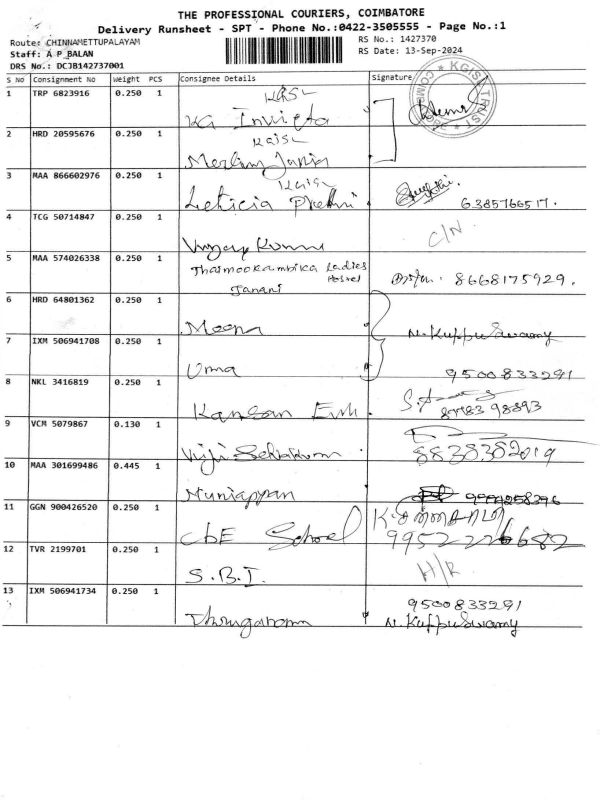 THE PROFESSIONAL COURIERS, COIMBATORE
Delivery Runsheet - SPT - Phone No.:0422-3505555 - Page No.:1
Route: CHINNAMETTUPALAYAM
RS No.: 1427370
Staff: A P BALAN
RS Date: 13-Sep-2024
DRS No.: DCJB142737001
S No Consignment No Weight PCS Consignee Details Signature
KGISL TRUST
1 TRP 6823916 0.250 1
KG Invicta
2 HRD 20595676 0.250 1
Merlin
3 MAA 866602976 0.250 1
Leticia Prethi
6385766517.
4 TCG 50714847 0.250 1
C/N
5 MAA 574026338 0.250 1
Thaimookambika Ladies
Hostel
Janani
8668175929.
6 HRD 64801362 0.250 1
Meena
N. Kuppuswamy
7 IXM 506941708 0.250 1
Uma
9500833291
8 NKL 3416819 0.250 1
9 VCM 5079867 0.130 1
8838382019
10 MAA 301699486 0.445 1
Muniappan
11 GGN 900426520 0.250 1
CBE School
9952226682
12 TVR 2199701 0.250 1
S.B.I.
H/R
13 IXM 506941734 0.250 1
9500833291
N. Kuppuswamy